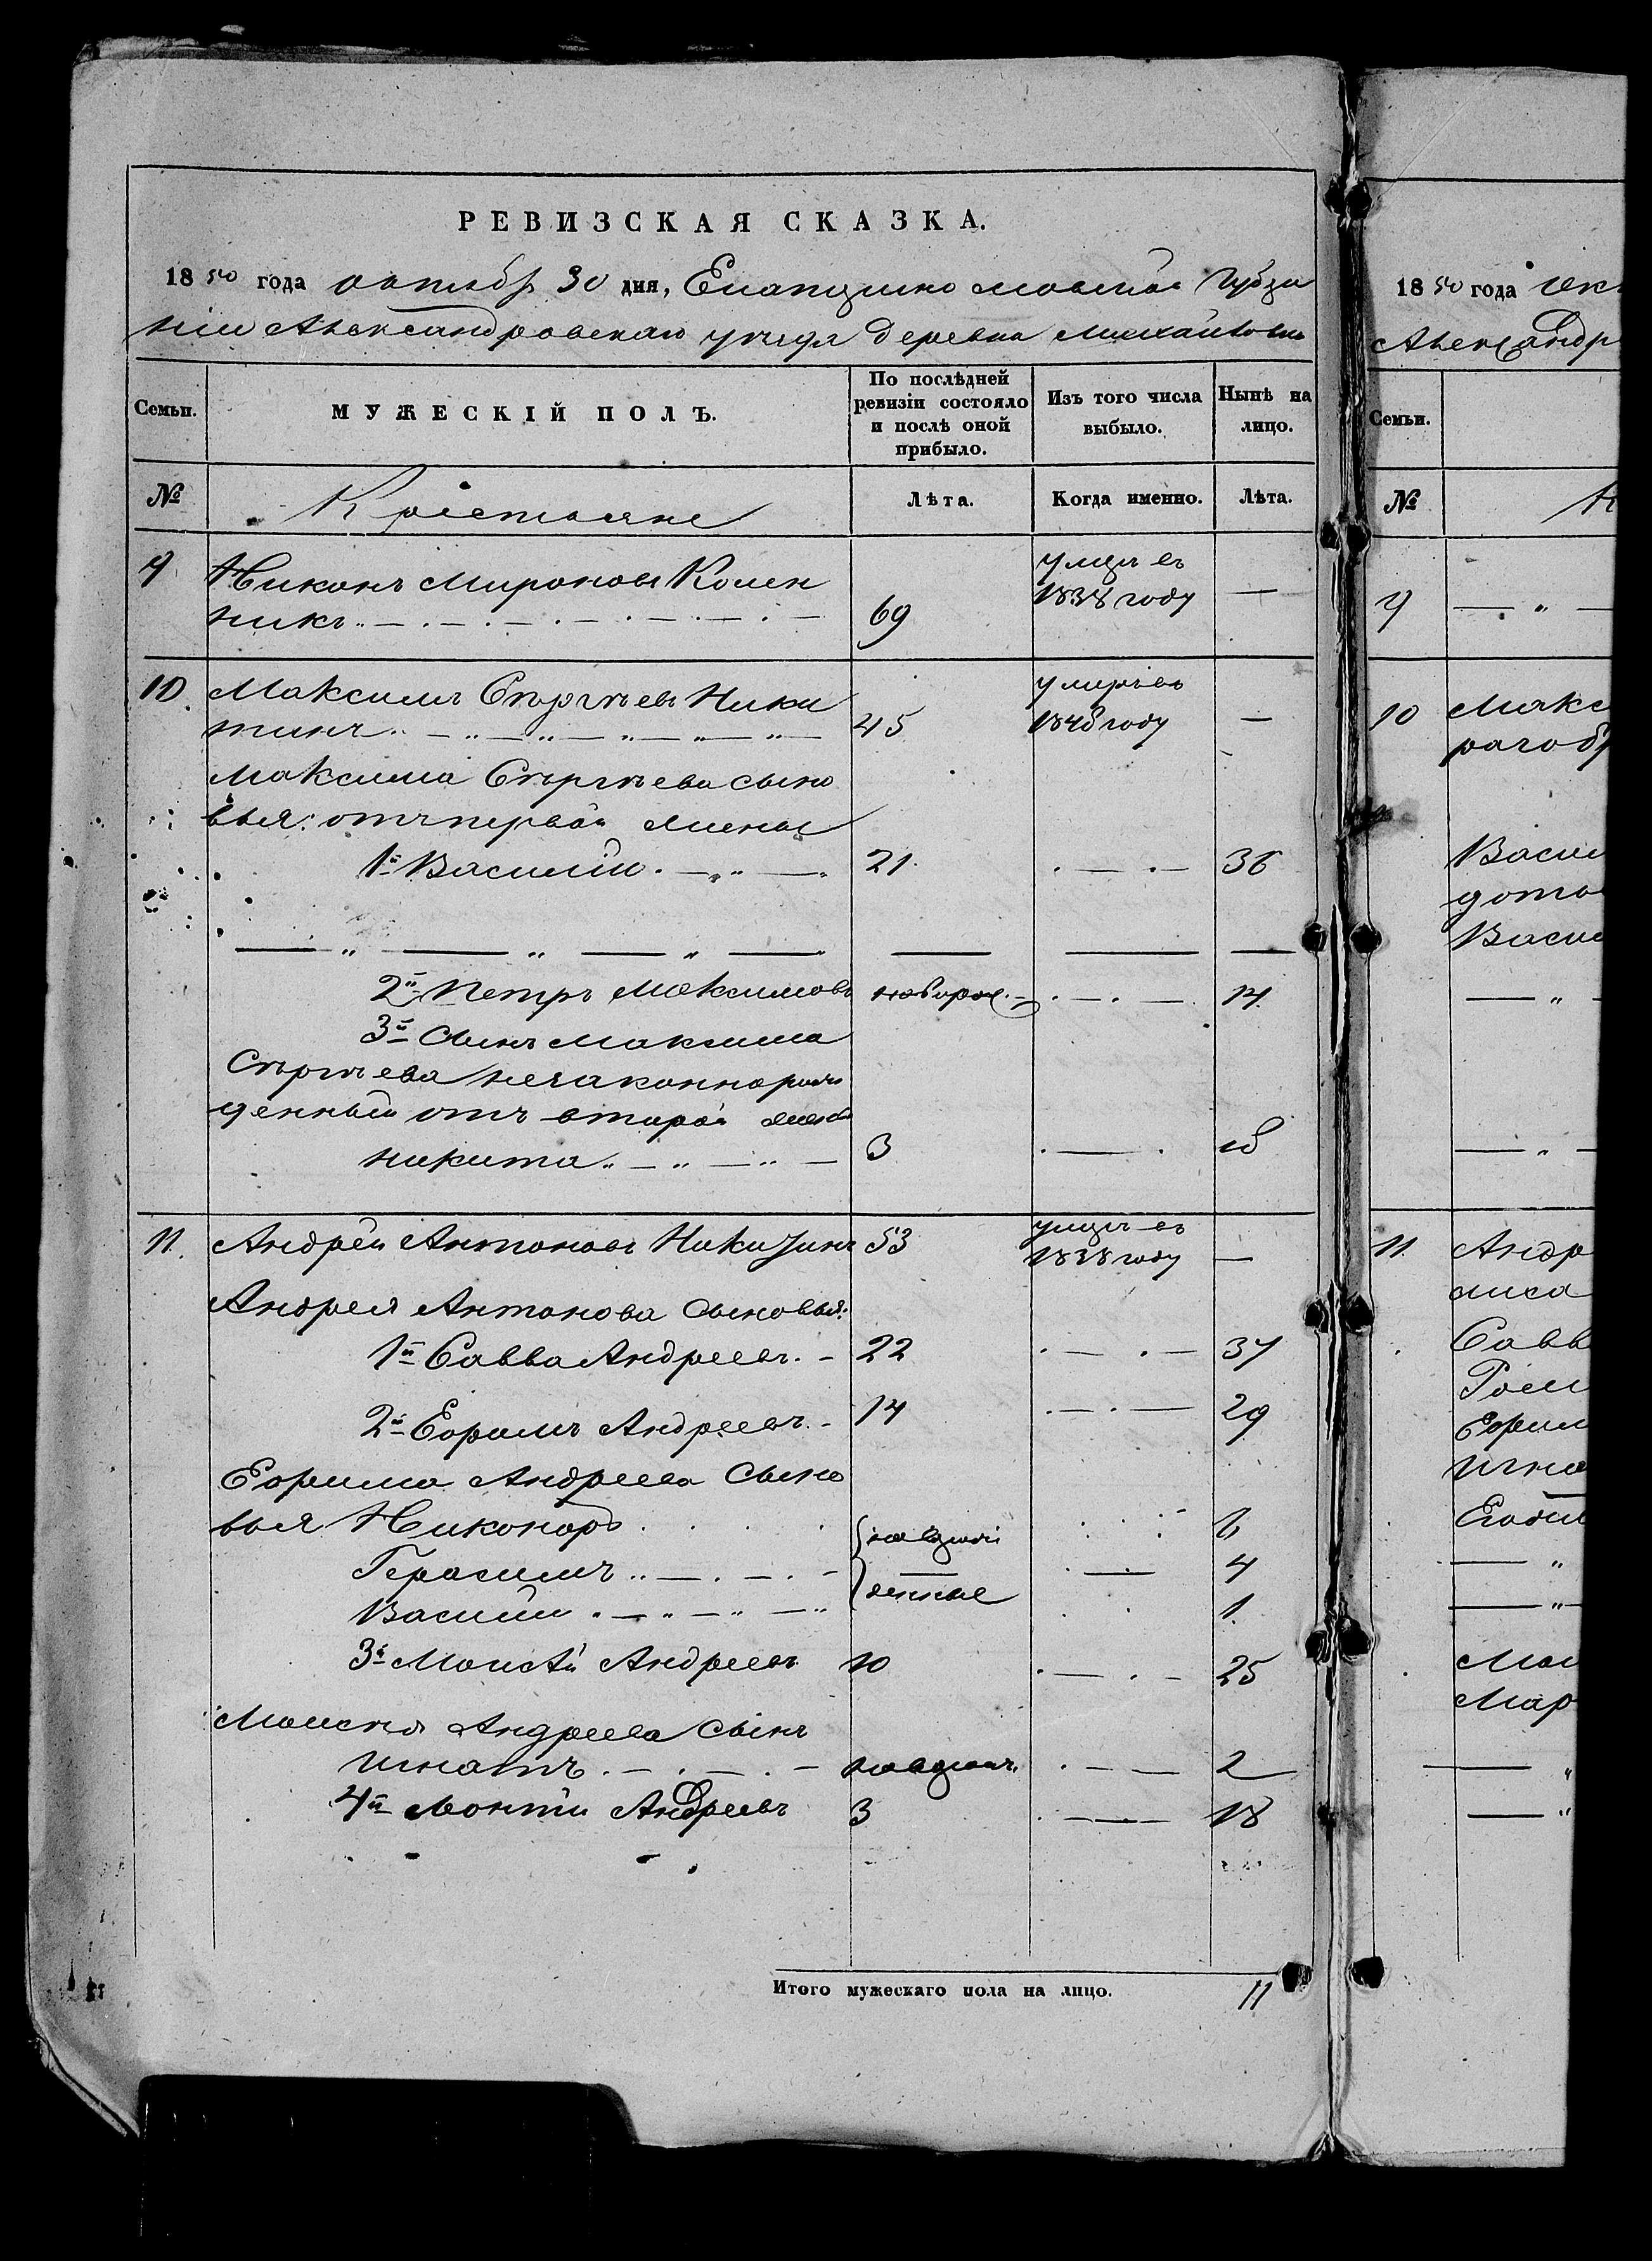 РЕВИЗСКАЯ СКАЗКА.
1850 года октября 30 дня, Екатеринославской Губер
ніи Александровскаго уезда деревни Михайловки
Семьи. МУЖЕСКІЙ ПОЛЪ. По послѣдней ревизіи состояло и послѣ оной прибыло. Изъ того числа выбыло. Нынѣ на лицо.
№ Крестьяне Лѣта. Когда именно. Лѣта.
9 Никонъ Мироновъ
никъ 69 1838 году —
10. Максимъ Сергѣевъ Ники умеръ въ
тинъ 45 1848 году —
Максима Сергѣева сыно
вья: отъ первой жены
1й Василій 21. 36
2й Петръ Максимовъ 14
3й Сынъ Максима
Сергѣева незаконнорож
денный отъ второй жены
Никита 3 18
11. Андрей Антоновъ Никитинъ 53 1838 году —
Андрея Антонова Сыновья:
1й Савва Андреевъ 22 37
2й Ефимъ Андреевъ 14 29
Ефима Андреева Сыно
вья Никоноръ 6
Герасимъ 4
Василій 1
3й Моисѣй Андреевъ 10 25
Моисея Андреева Сынъ
Игнатъ 2
4й Леонтій Андреевъ 3 18
Итого мужескаго пола на лицо. 11
1850 года
Александр
Семьи.
№
9
10 Макс
Васил
Васил
11. Андр
Савв
Ефим
Мои
Мар